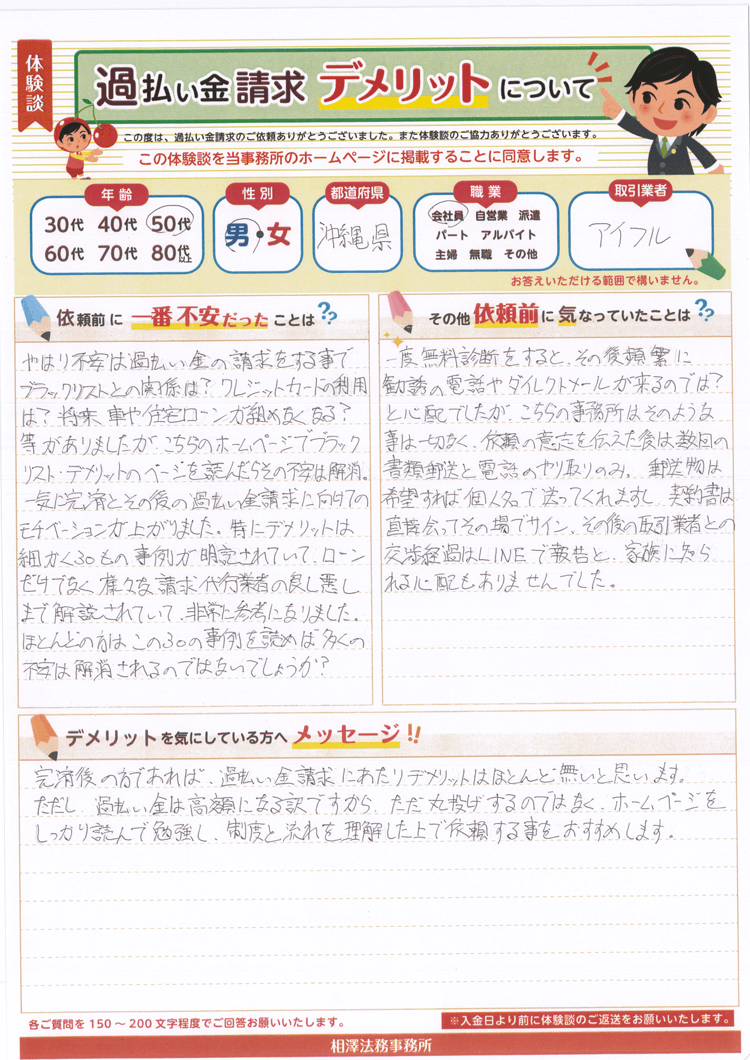 体験談
過払い金請求 デメリットについて
この度は、過払い金請求のご依頼ありがとうございました。また体験談のご協力ありがとうございます。
この体験談を当事務所のホームページに掲載することに同意します。
年齢
30代 40代 50代
60代 70代 80代以上
性別
男・女
都道府県
沖縄県
職業
会社員 自営業 派遣
パート アルバイト
主婦 無職 その他
取引業者
アイフル
お答えいただける範囲で構いません。
依頼前に一番不安だったことは??
やはり不安は過払い金の請求をする事で
ブラックリストとの関係は?クレジットカードの利用
は?将来、車や住宅ローンが組めなくなる?
等がありましたが、こちらのホームページでブラック
リスト・デメリットのページを読んだらその不安は解消。
一気に完済とその後の過払い金請求に向けての
モチベーションが上がりました。特にデメリットは
細かく30もの事例が明記されていて、ローン
だけでなく様々な請求代行業者の良し悪し
まで解説されていて、非常に参考になりました。
ほとんどの方はこの30の事例を読めば多くの
不安は解消されるのではないでしょうか?
その他依頼前に気なっていたことは??
一度無料診断をすると、その後頻繁に
勧誘の電話やダイレクトメールが来るのでは?
と心配でしたが、こちらの事務所はそのような
事は一切なく、依頼の意志を伝えた後は数回の
書類郵送と電話のやり取りのみ。郵送物は
希望すれば個人名で送ってくれますし、契約書は
直接会ってその場でサイン、その後の取引業者との
交渉経過はLINEで報告と、家族に知ら
れる心配もありませんでした。
デメリットを気にしている方へメッセージ!!
完済後の方であれば、過払い金請求にあたりデメリットはほとんど無いと思います。
ただし、過払い金は高額になる訳ですから、ただ丸投げするのではなく、ホームページを
しっかり読んで勉強し、制度と流れを理解した上で依頼する事をおすすめします。
各ご質問を150～200文字程度でご回答お願いいたします。
※入金日より前に体験談のご返送をお願いいたします。
相澤法務事務所